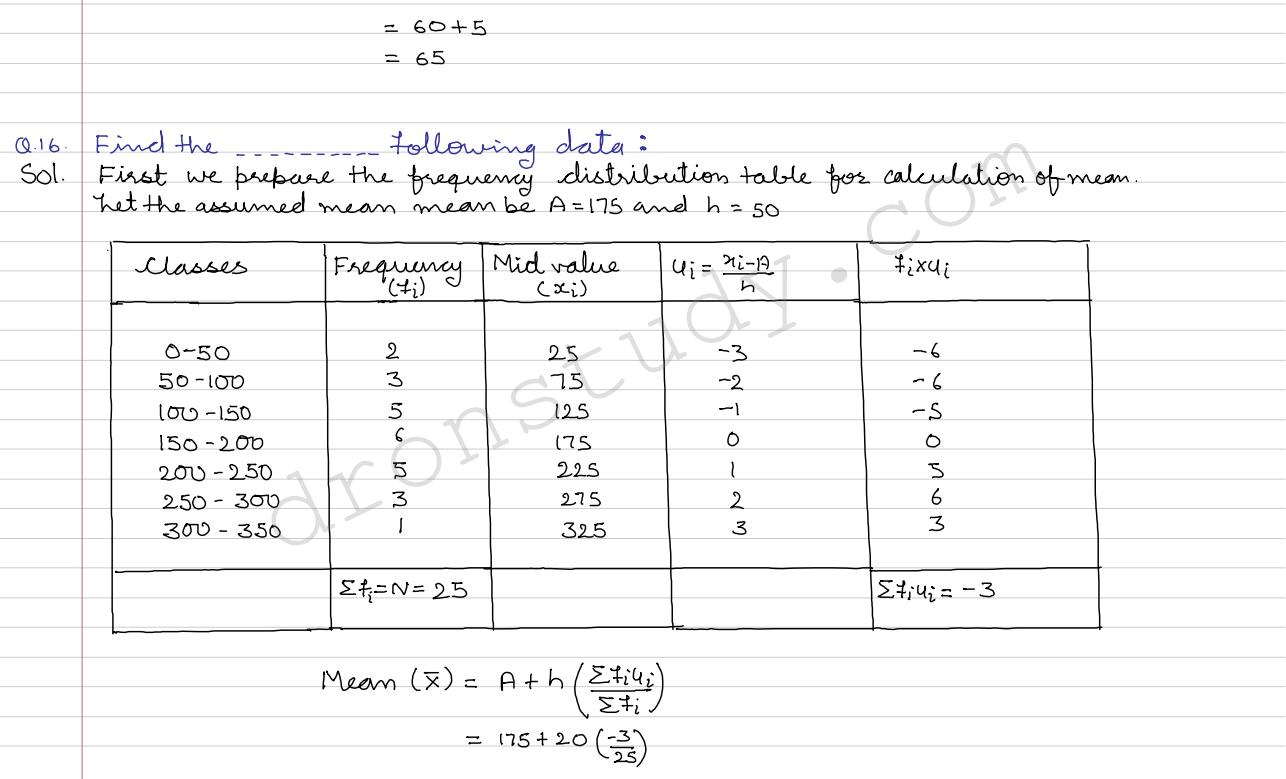 = 60+5
= 65
Q.16. Find the ---------- following data:
Sol. First we prepare the frequency distribution table for calculation of mean.
Let the assumed mean mean be A=175 and h=50
Classes Frequency (fi) Mid value (xi) ui = xi-A/h fi×ui
0-50 2 25 -3 -6
50-100 3 75 -2 -6
100-150 5 125 -1 -5
150-200 6 175 0 0
200-250 5 225 1 5
250-300 3 275 2 6
300-350 1 325 3 3
Σfi=N=25 Σfiui=-3
Mean (x̄) = A+h(Σfiui/Σfi)
= 175+20(-3/25)
dronstudy.com